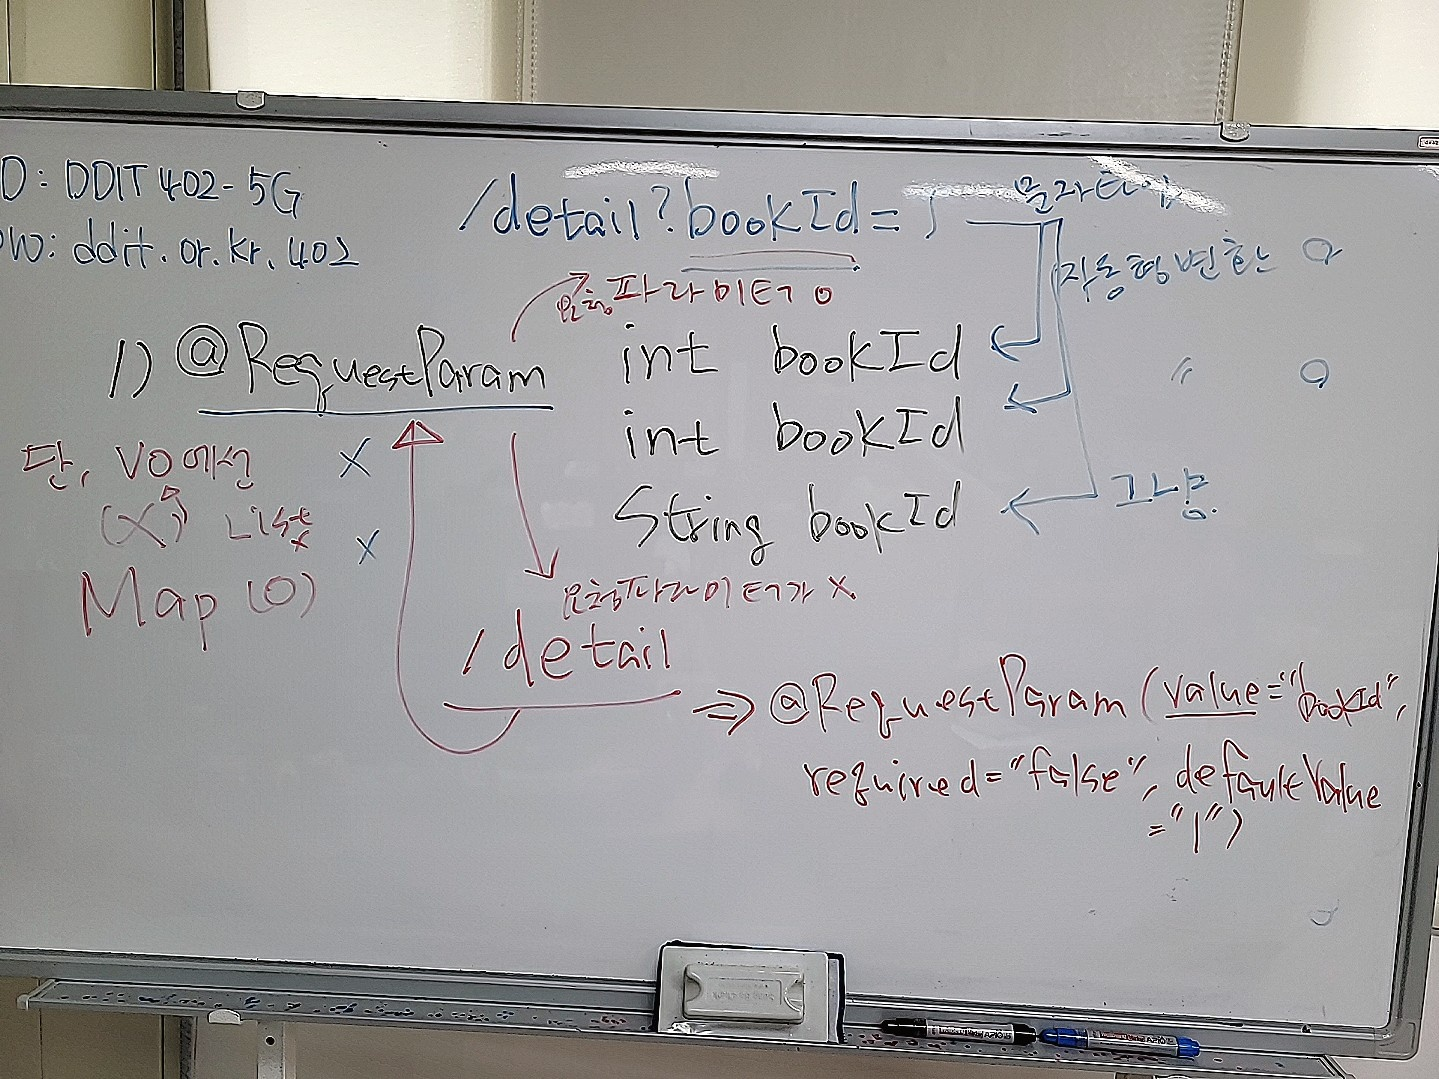 D: DDIT 402-5G
PW: ddit.or.kr.402
/detail?bookId=5
문자타입
자동형변환 O
요청파라미터 O
1) @RequestParam int bookId
〃 O
int bookId
단, VO에선 X
(X) List X
x
String bookId
그냥.
Map (O)
요청파라미터가 X.
/detail
⇒ @RequestParam (value="bookId",
required="false", defaultValue
="1")